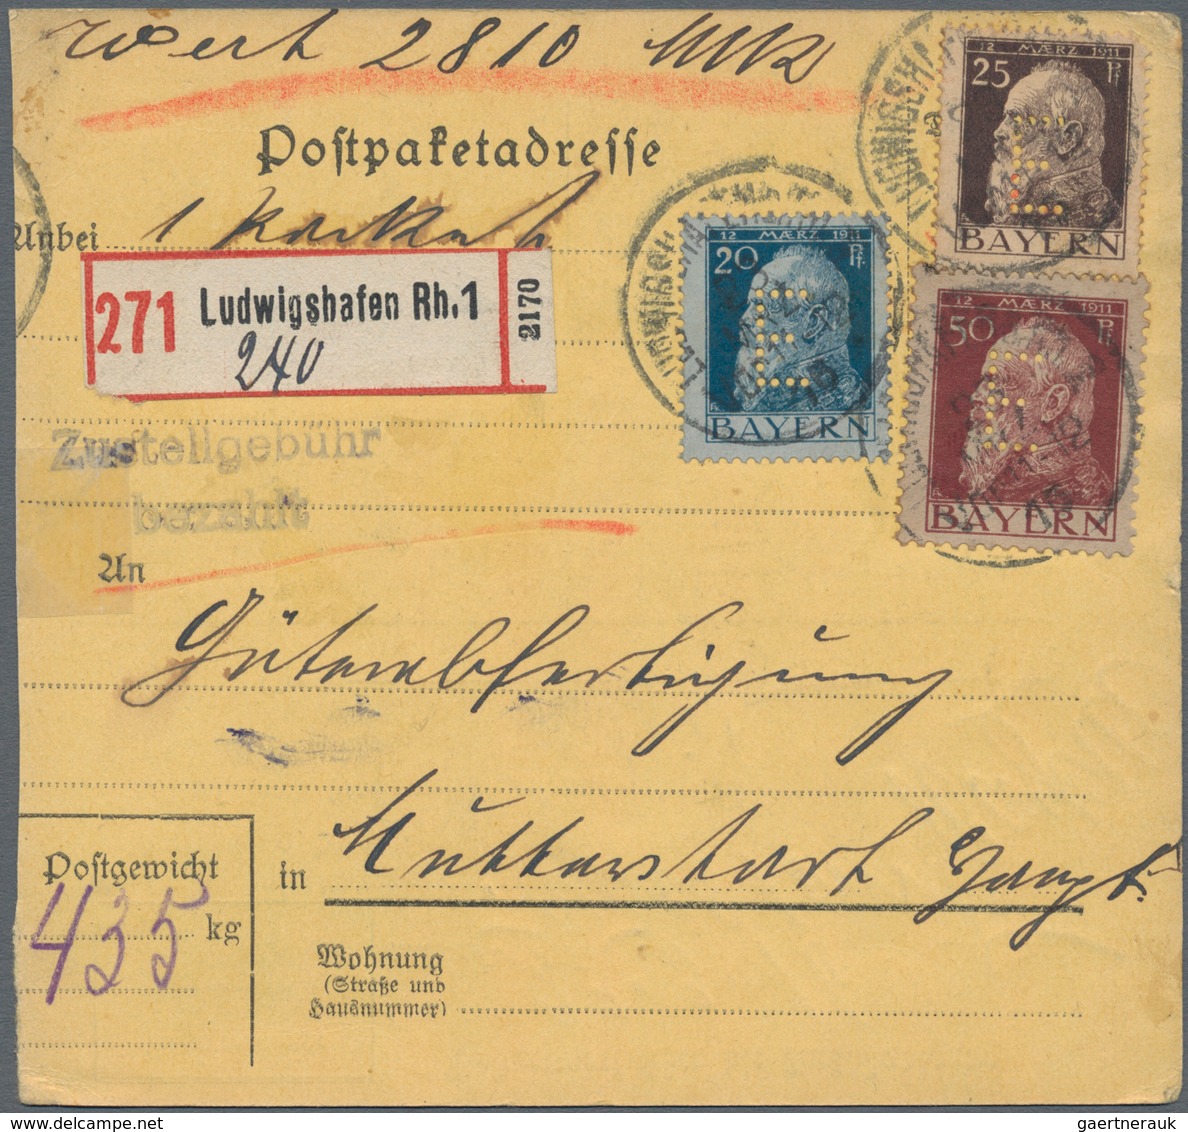 Wert 2810 Mk
Postpaketadresse
Anbei 1 Packet
271 Ludwigshafen Rh. 1
240
2170
Zustellgebühr
bezahlt
An
Güterabfertigung
in Mutterstadt Hauptb.
Postgewicht
435 kg
Wohnung
(Straße und
Hausnummer)
12 MÆRZ 1911
25 Pf
BAYERN
12 MÆRZ 1911
20 Pf
BAYERN
12 MÆRZ 1911
50 Pf
BAYERN
E
E
E
gaertnerauk